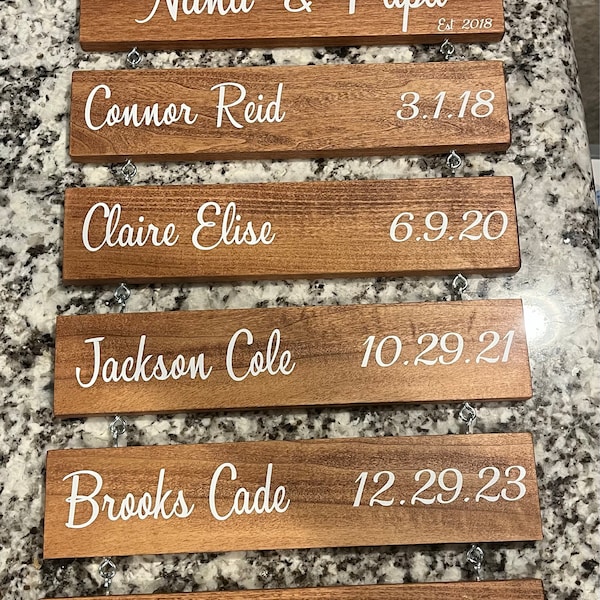 Nana & Papa
Est 2018
Connor Reid 3.1.18
Claire Elise 6.9.20
Jackson Cole 10.29.21
Brooks Cade 12.29.23